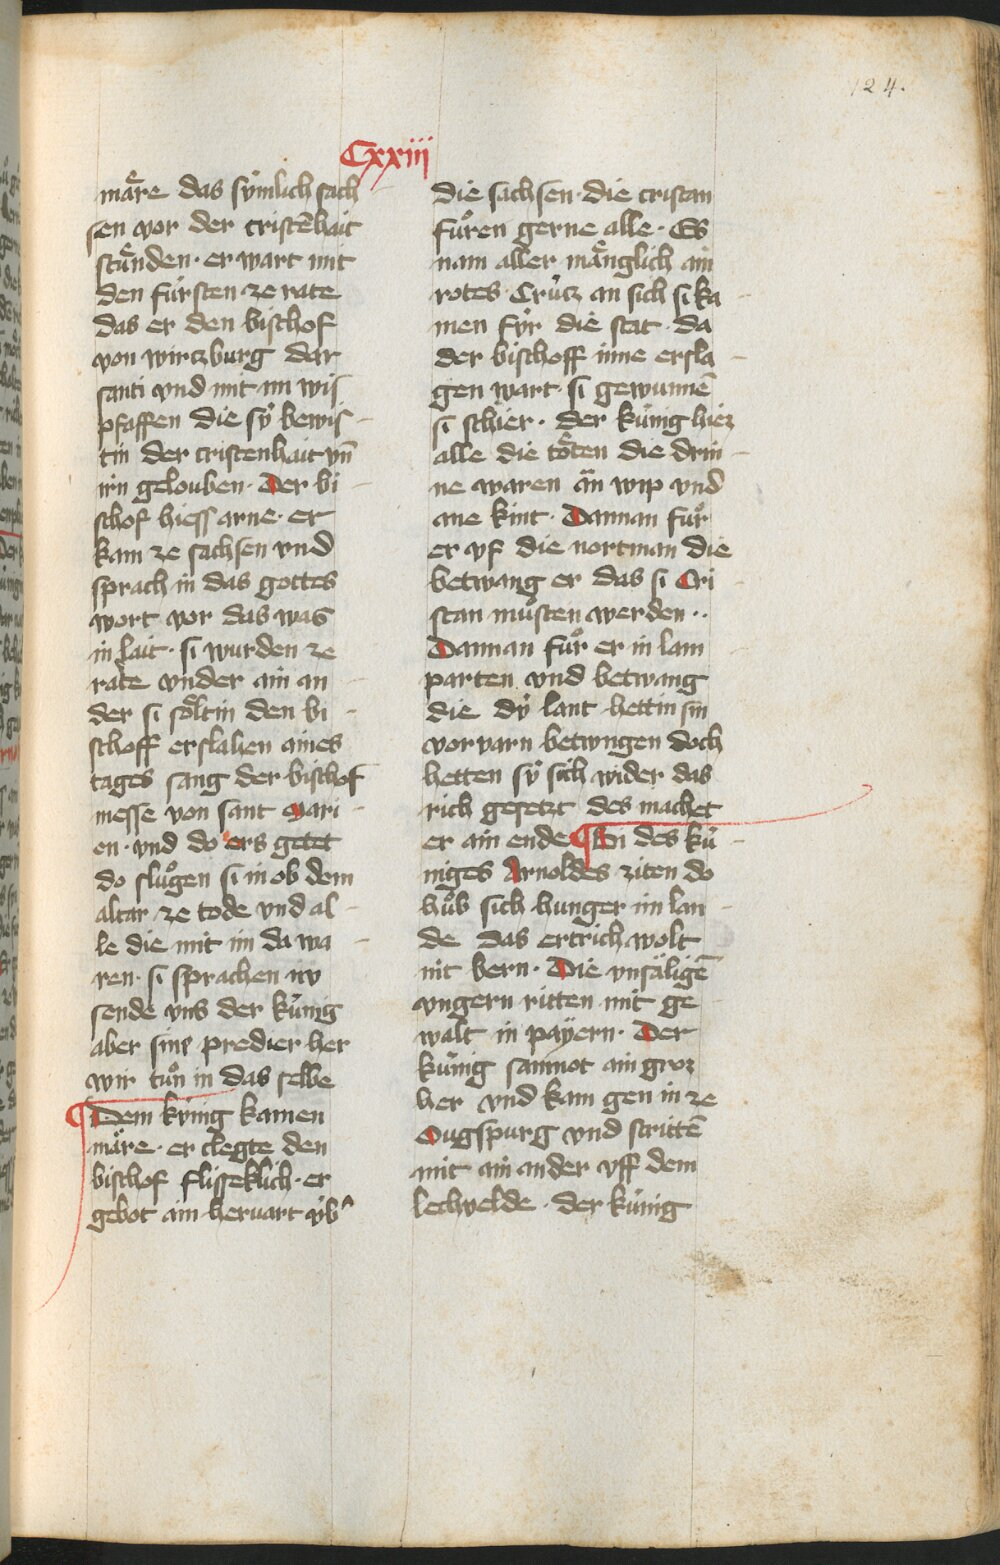 124.
Cxxiii
märe das sỳmlich sach
sen vor der cristēhait
stůnden · er wart mit
den fürsten ze rate
das er den bischof
von wirczburg dar
santi vnd mit im wis
pfaffen die sÿ bewis
tin der cristenhait vn̄
irn gelouben · Der bi
schof hiess arne · er
kam ze sachsen vnd
sprach in das gottes
wort vor das was
in lait · si wurden ze
rate vnder ain an
der si söltin den bi
schoff erslahen aines
tages sang der bischof
messe von sant Mari
en · vnd do ers getet
do slůgen si in ob dem
altar ze tode vnd al
le die mit im da wa
ren · si sprachen nv
sende vns der künig
aber sine predier her
wir tůn in das selbe
¶ Dem kynig kamen
märe · er clegte den
bischof flisseklich · er
gebot ain hervart ÿb
die sachsen · die cristan
fůren gerne alle · Es
nam aller mänglich ain
rotes Crücz an sich si ka
men fÿr die stat · da
der bischoff inne ersla
gen wart · si gewunnē
si schier · der künig hiez
alle die töten die drin
ne waren än wip vnd
ane kint · Dannan fůr
er vf die nortman die
betwang er das si Cri
stan můsten werden ··
Dannan fůr er in lam
parten vnd betwang
die dÿ lant hettin sin
vorvarn betwngen doch
hetten sÿ sich wider das
rich gesetzt des machet
er ain ende ¶ Bi des kü
niges Arnoldes ziten do
hůb sich hunger im lan
de das ertrich wolt
nit bern · Die vnsäligē
vngern ritten mit ge
walt in payern · Der
künig samnot ain groz
her vnd kam gen in ze
Ougspurg vnd strittē
mit ain ander vff dem
lechvelde · der künig